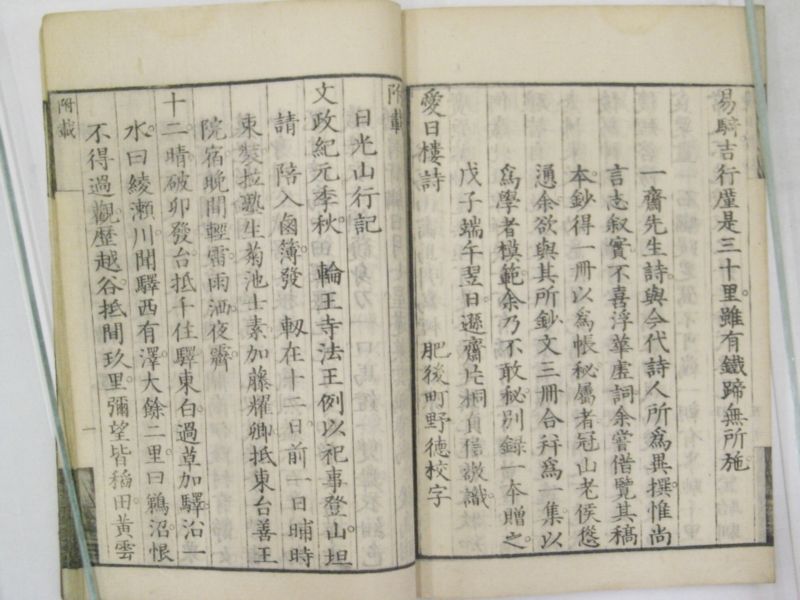 易騎吉行廑是三十里。雖有鐵蹄無所施。
一齋先生詩與今代詩人所爲異撰惟尚
言志叙實不喜浮華虛詞余嘗借覽其稿
本鈔得一冊以爲帳秘屬者冠山老侯慫
慂余欲與其所鈔文三冊合并爲一集以
爲學者模範余乃不敢秘別錄一本贈之
戊子端午翌日遜齋片桐信識
愛日樓詩 肥後町野德校字
附載
日光山行記
文政紀元季秋。 輪王寺法王例以祀事登山。坦
請 陪入鹵簿發 軔在十二日。前一日晡時
束裝拉塾生菊池士素加藤耀卿抵東台善王
院宿晚間輕雨洒夜霽
十二。晴破卯發台抵千住驛東白。過草加驛沿一
水。曰綾瀨川聞驛西有澤大餘二里。曰鶉沼恨
不得過觀。歷越谷抵間玖里。彌望皆稻田黃雲
附載
一